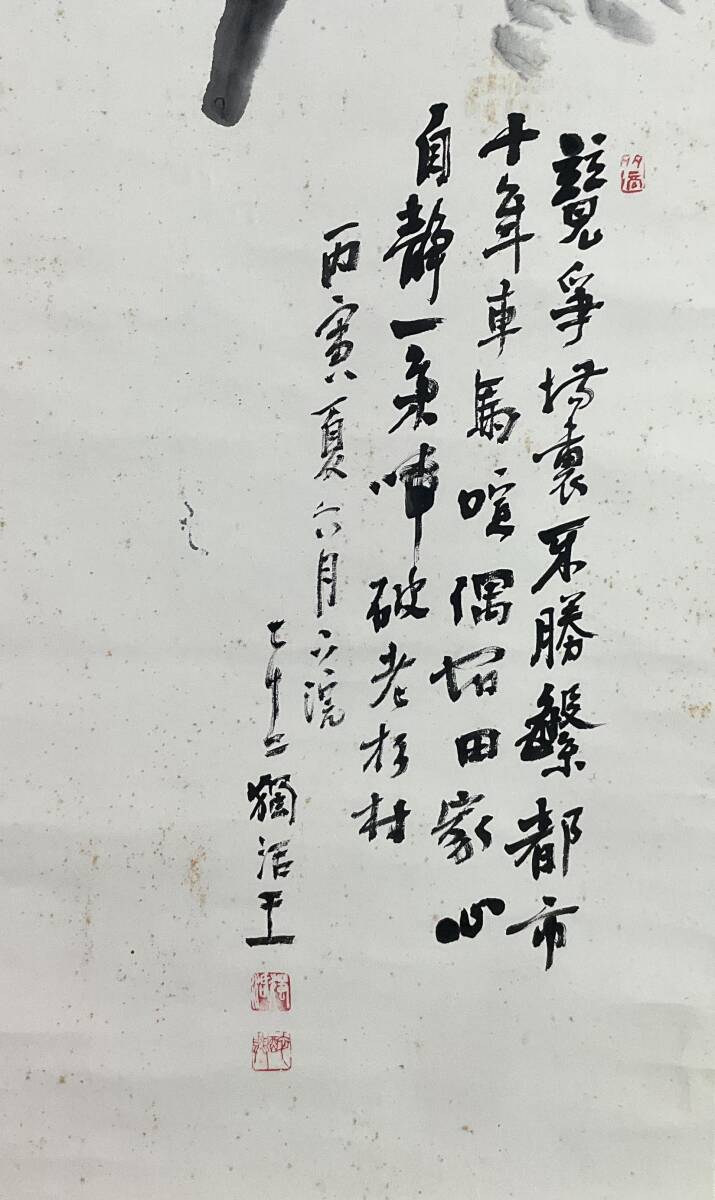 競爭場裏不勝繁都市
十年車馬喧偶宿田家心
自靜一啼破老杉村
丙寅夏六月下浣
七十二獨活